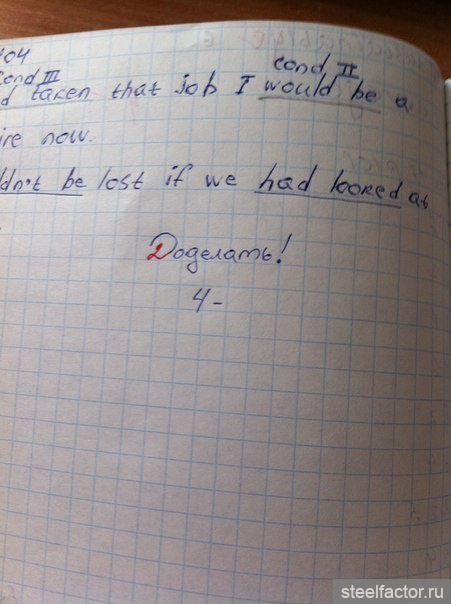 04
cond III
cond II
d taken that job I would be a
ire now.
ldn't be lost if we had looked at
Доделать!
4-
steelfactor.ru